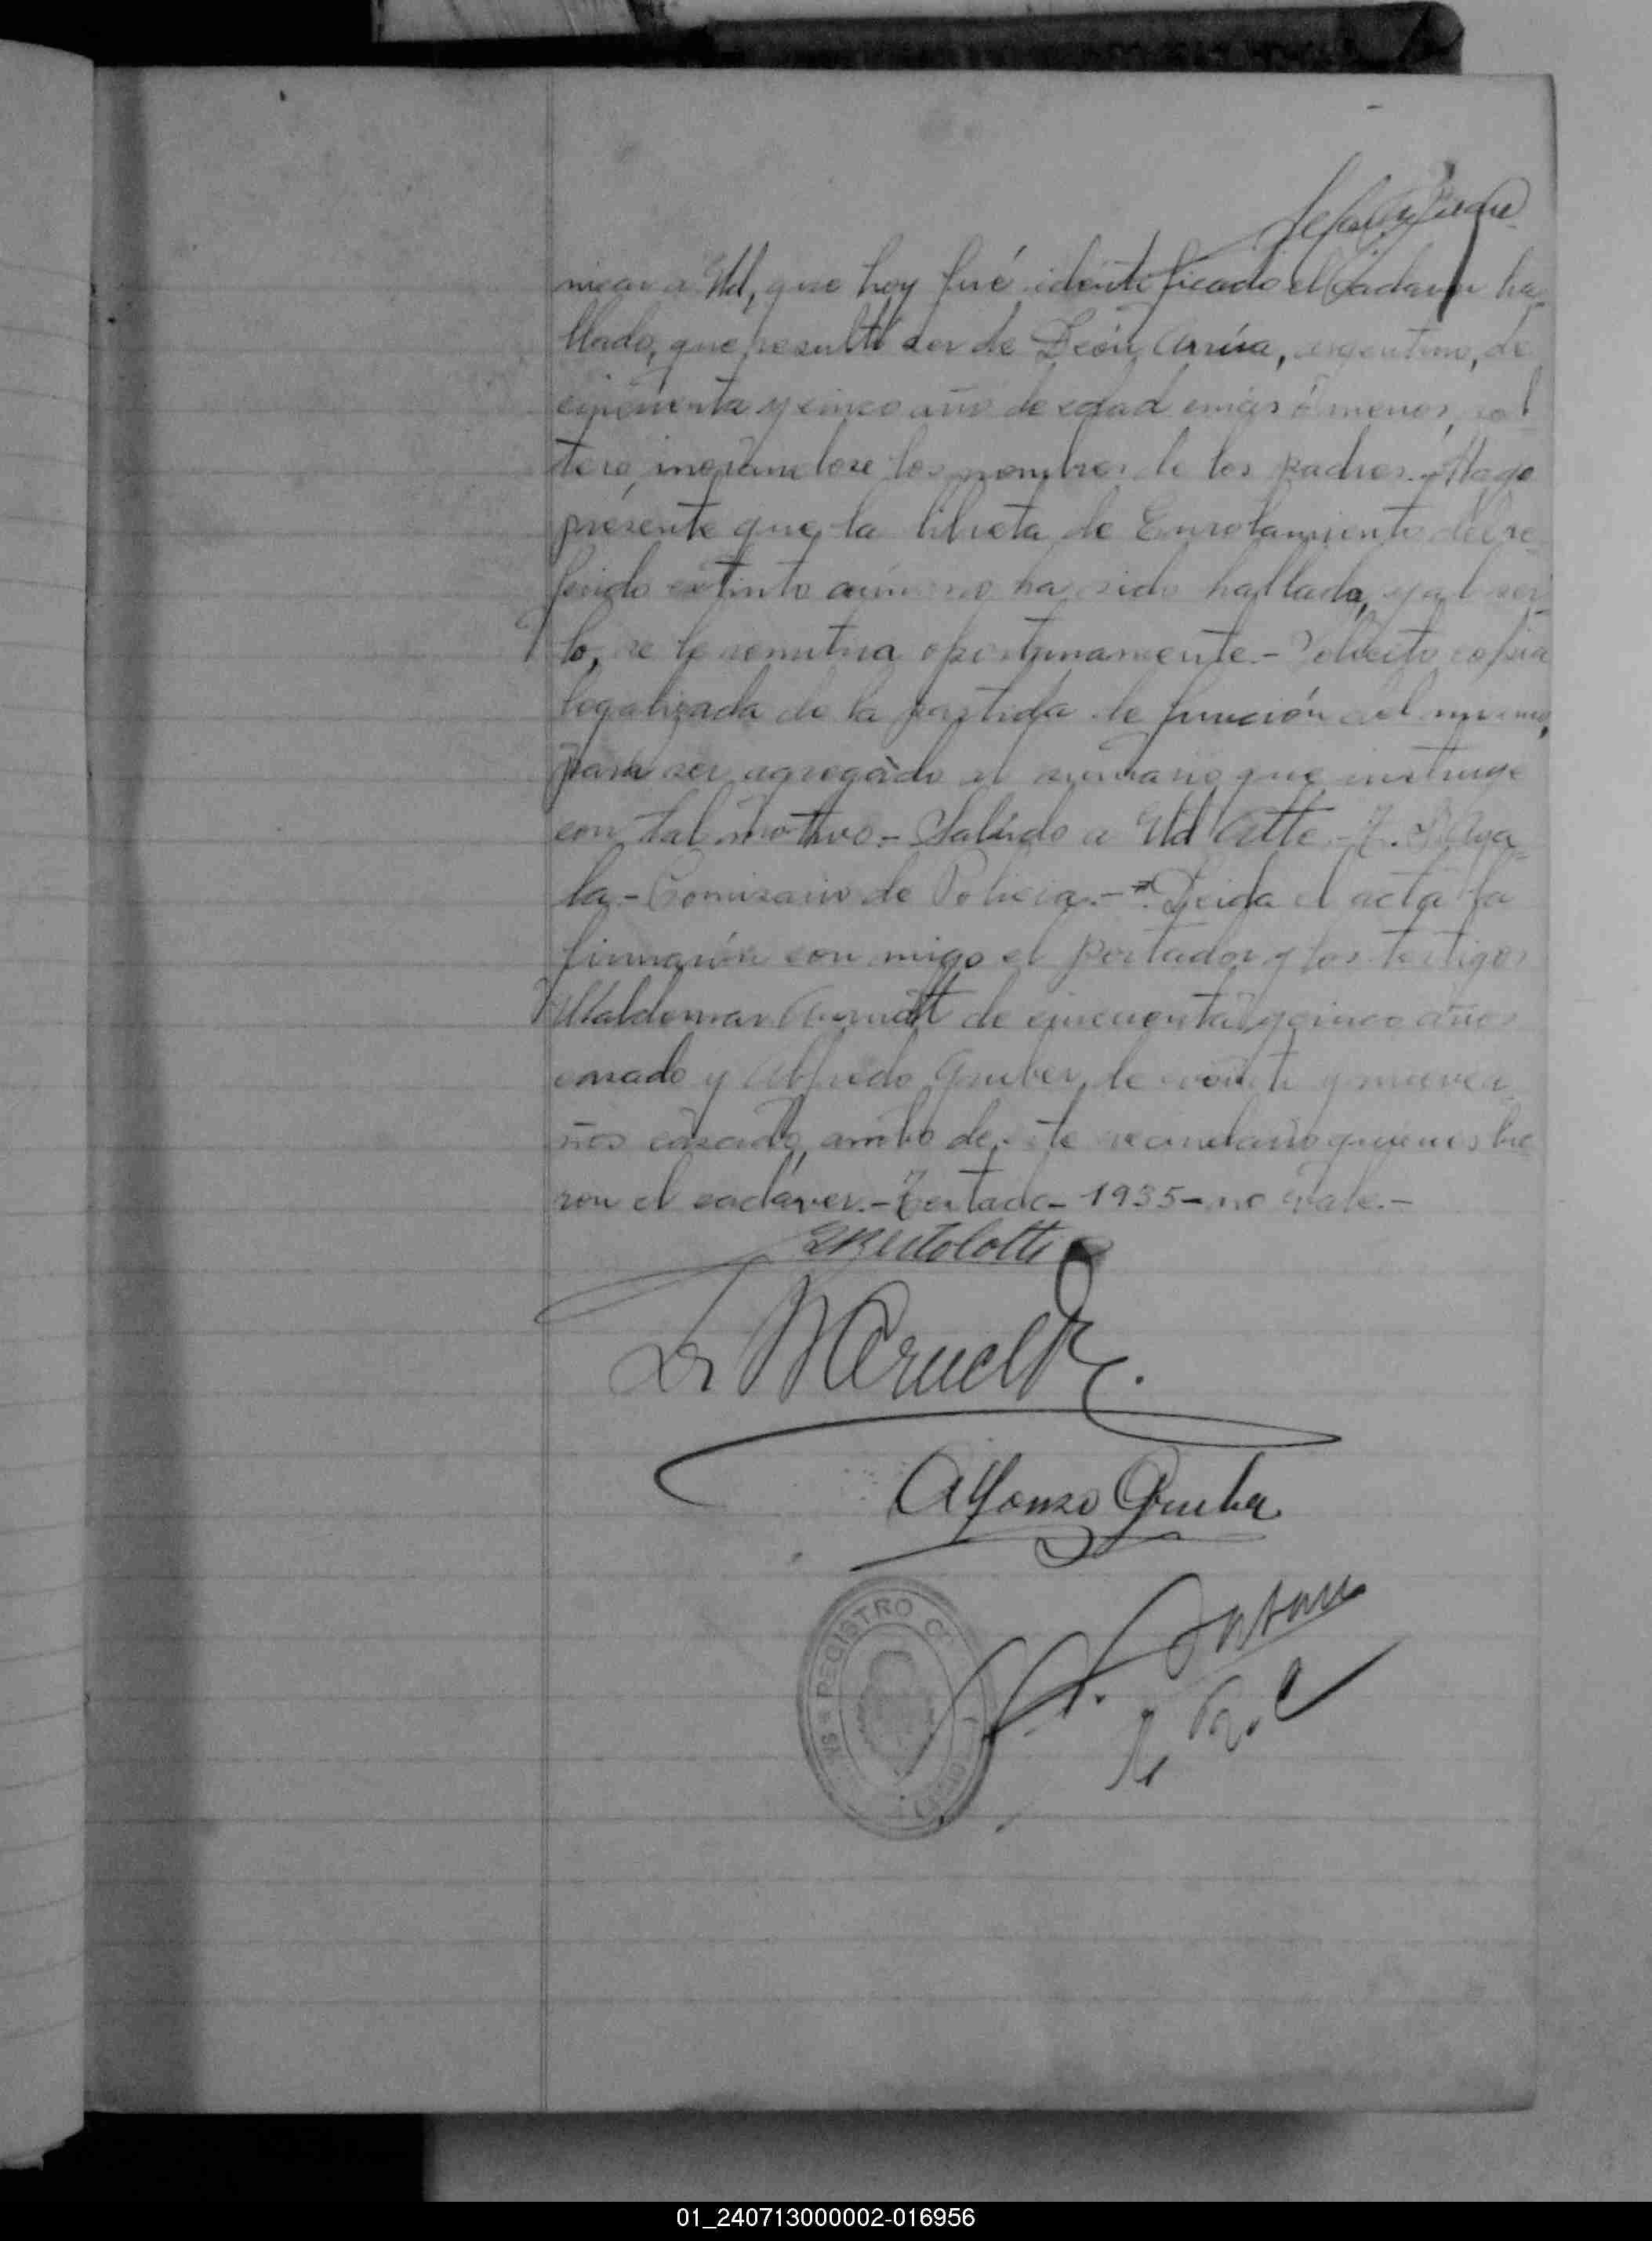 nicar a Ud, que hoy fué identificado el cadaver ha-
llado, que resultó ser de León Arrúa, argentino, de
cincuenta y cinco año de edad más ó menos, sol-
tero, inorandose los nombres de los padres.- Hago
presente que la libreta de Enrolamiento del re-
ferido extinto aún no ha sido hallada, y al ser-
lo, se le remitira oportunamente.- Solicito copia
legalizada de la partida de función del mismo,
para ser agregado al sumario que instruye
con tal motivo.- Saludo a Ud Atte.- Aya-
la.- Comisario de Policia.- Leida el acta la
firmarón con migo el portador y los testigos
Waldemar de cincuenta y cinco años
casado y Alfredo Gruber, de veinte y nueve a-
ños casado, ambo de este vecindario quienes
ron el cadáver.- Testado- 1935- no vale.-
Bertolotti
Alfonso Gruber
REGISTRO
01_240713000002-016956